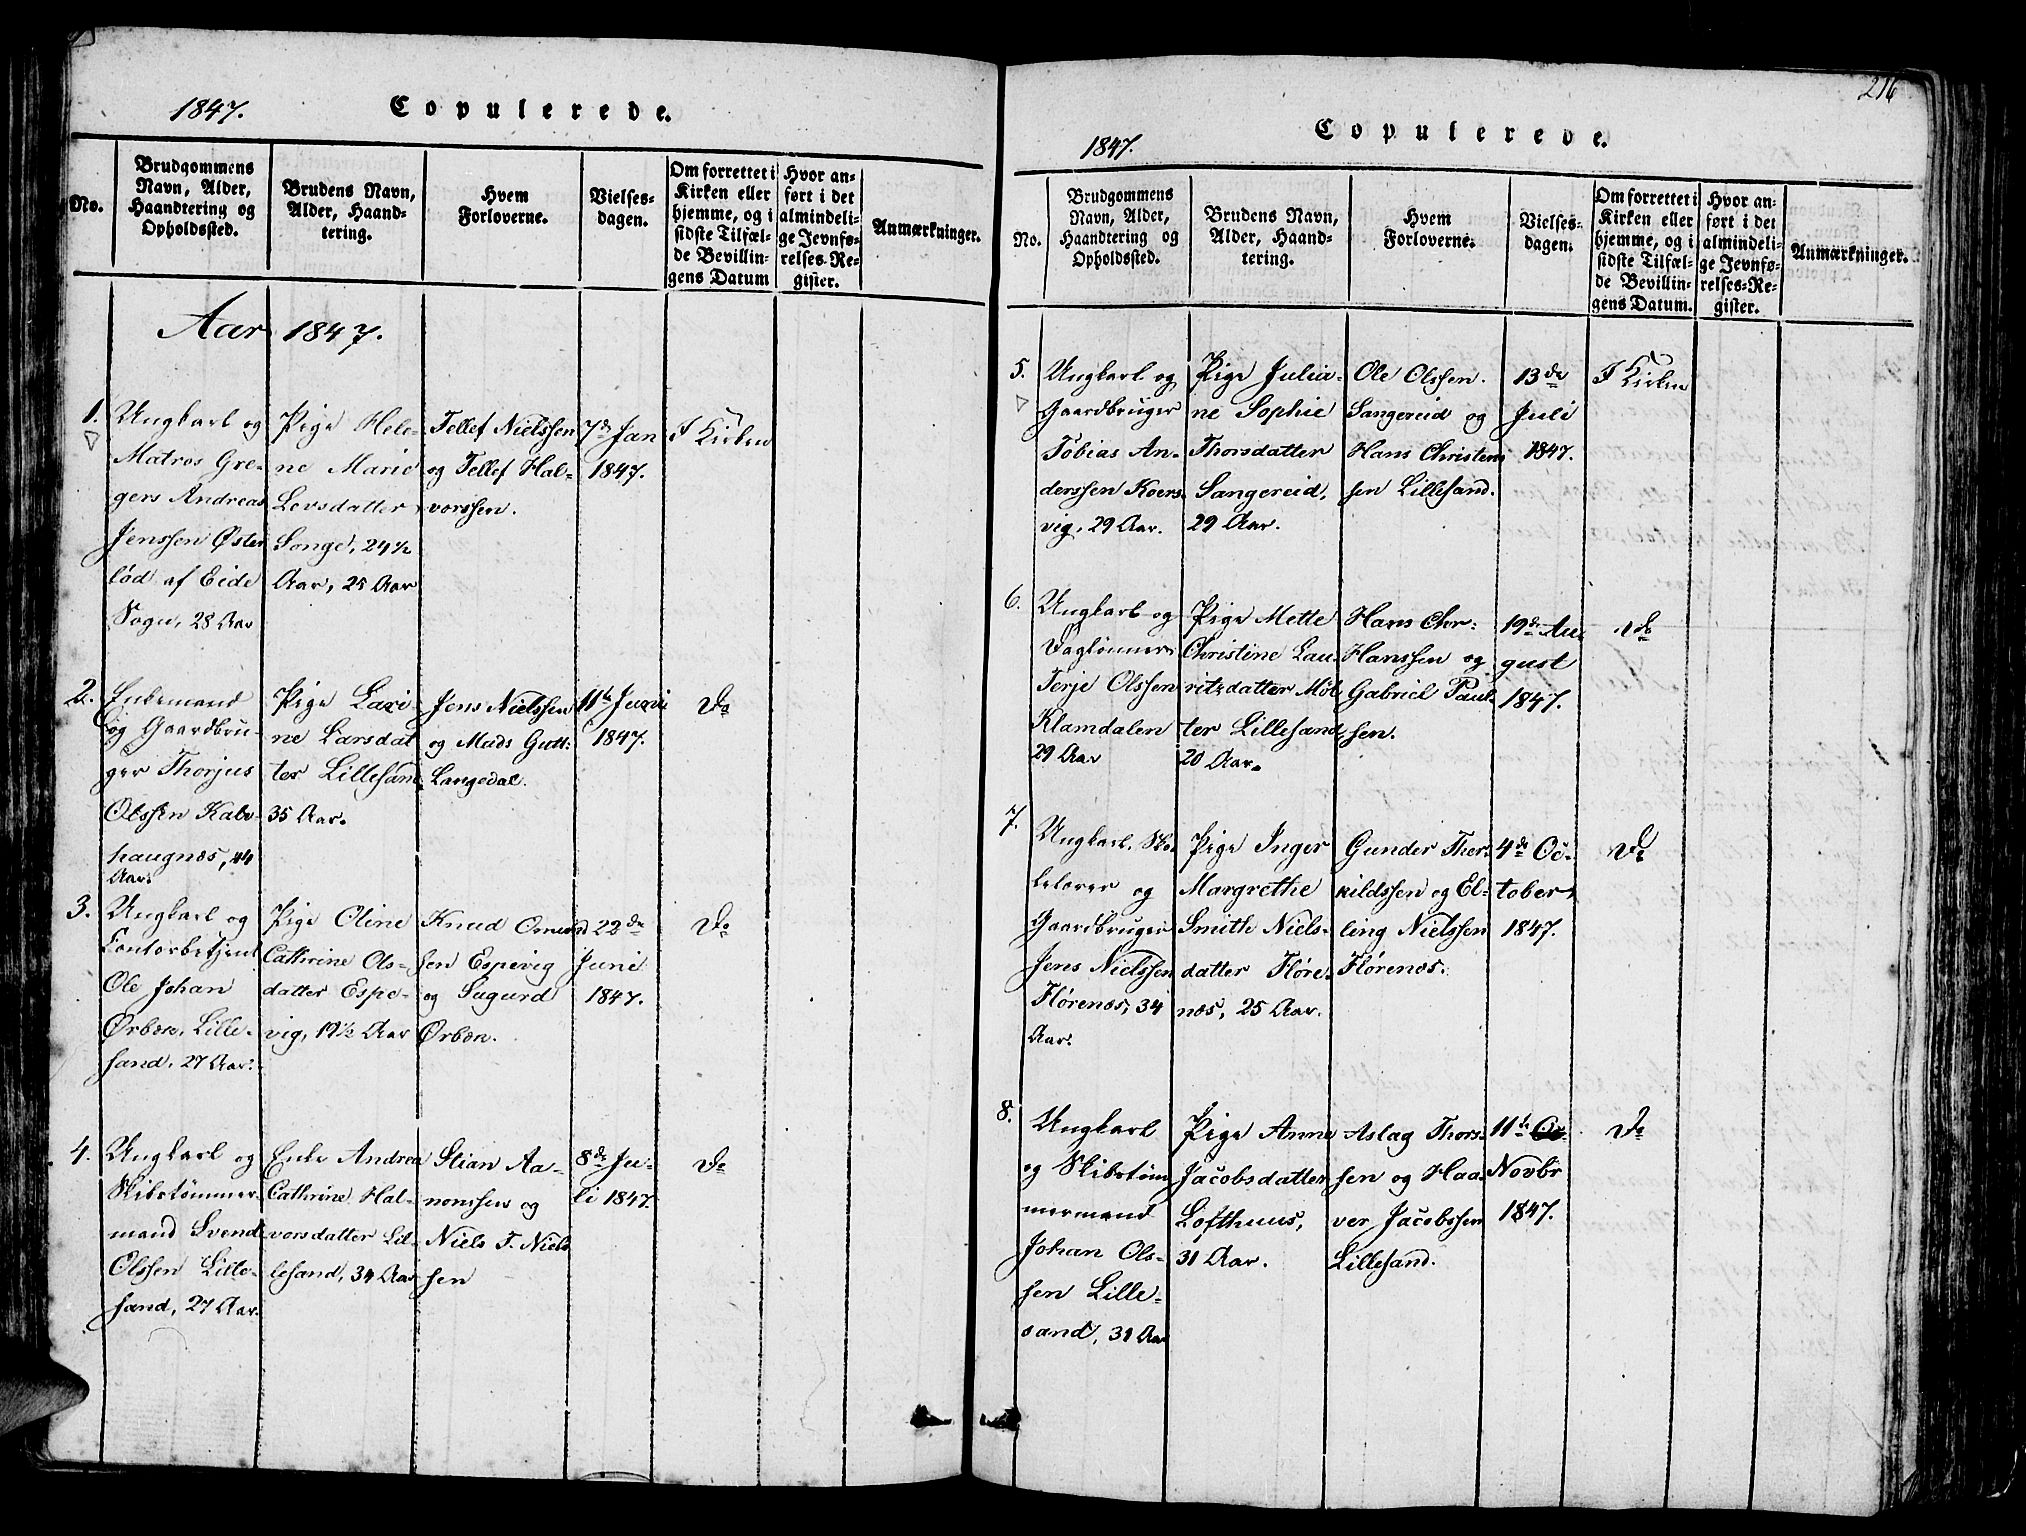 1847.
Copulerede.
No.
Brudgommens
Navn, Alder,
Haandtering og
Opholdssted.
Brudens Navn,
Alder, Haand-
tering.
Hvem
Forloverne.
Vielses-
dagen.
Om forrettet i
Kirken eller
hjemme, og i
sidste Tilfæl-
de Bevillin-
gens Datum
Hvor an-
ført i det
almindeli-
ge Jevnfø-
relses-Re-
gister.
Anmærkninger.
Aar 1847.
1.
Ungkarl og
Matros Gre-
gers Andreas
Jenssen Øster
lød af Eide
Sogn, 28 Aar
Pige Hele-
ne Marie
Levsdatter
Songe, 24½
Aar, 25 Aar
Tellef Nielssen
og Tellef Hal-
vorssen.
7de Jan
1847.
I Kirken
2.
Enkemand
og Gaardbru-
ger Thorjus
Olssen Kalv-
haugnæs, 44
Aar.
Pige Lari-
ne Larsdat
ter Lillesand
35 Aar.
Jens Nielssen
og Mads Gutt:
Langedal.
11te Juni
1847.
Do
3.
Ungkarl og
Contorbetjent
Ole Johan
Ørbæn, Lille-
sand, 27 Aar.
Pige Oline
Cathrine Ols-
datter Espe-
vig, 19½ Aar
Knud Omund
sen Espevig
og Sugurd
Ørbæn.
22de
Juni
1847.
Do
4.
Ungkarl og
Skibstømmer-
mand Svend
Olssen Lille-
sand, 27 Aar.
Enke Andrea
Cathrine Hal-
vorsdatter Lil-
lesand, 34 Aar
Stian Aa-
nonssen og
Niels T. Niels
sen
8de Ju-
li 1847.
Do
216
1847.
Copulerede.
No.
Brudgommens
Navn, Alder,
Haandtering og
Opholdssted.
Brudens Navn,
Alder, Haand-
tering.
Hvem
Forloverne.
Vielses-
dagen.
Om forrettet i
Kirken eller
hjemme, og i
sidste Tilfæl-
de Bevillin-
gens Datum.
Hvor an-
ført i det
almindeli-
ge Jevnfø-
relses-Re-
gister.
Anmærkninger.
5.
Ungkarl og
Gaardbruger
Tobias An-
derssen Koers-
vig, 29 Aar.
Pige Julia-
ne Sophie
Thorsdatter
Sangereid,
29 Aar.
Ole Olssen.
Sangereid og
Hans Christen
sen Lillesand.
13de
Juli
1847.
I Kirken
6.
Ungkarl og
Daglønner
Terje Olssen
Klamdalen
29 Aar
Pige Mette
Christine Lau-
ritzdatter Møl
ter Lillesand
20 Aar.
Hans Chr:
Hanssen og
Gabriel Paul-
sen.
19de Au-
gust
1847.
do
7.
Ungkarl, Sko-
lelærer og
Gaardbruger
Jens Nielssen
Flørenæs, 34
Aar.
Pige Inger
Margrethe
Smith Niels-
datter Fløre-
næs, 25 Aar.
Gunder Ther-
kildssen og El-
ling Nielssen
Flørenæs.
4de Oc-
tober
1847.
Do
8.
Ungkarl
og Skibstøm
mermand
Johan Ols-
sen Lille-
sand, 31 Aar
Pige Anne
Jacobsdatter
Lofthuus,
31 Aar.
Aslag Thors-
sen og Haa-
ver Jacobssen
Lillesand.
11te Oc-
Novbr
1847.
Do